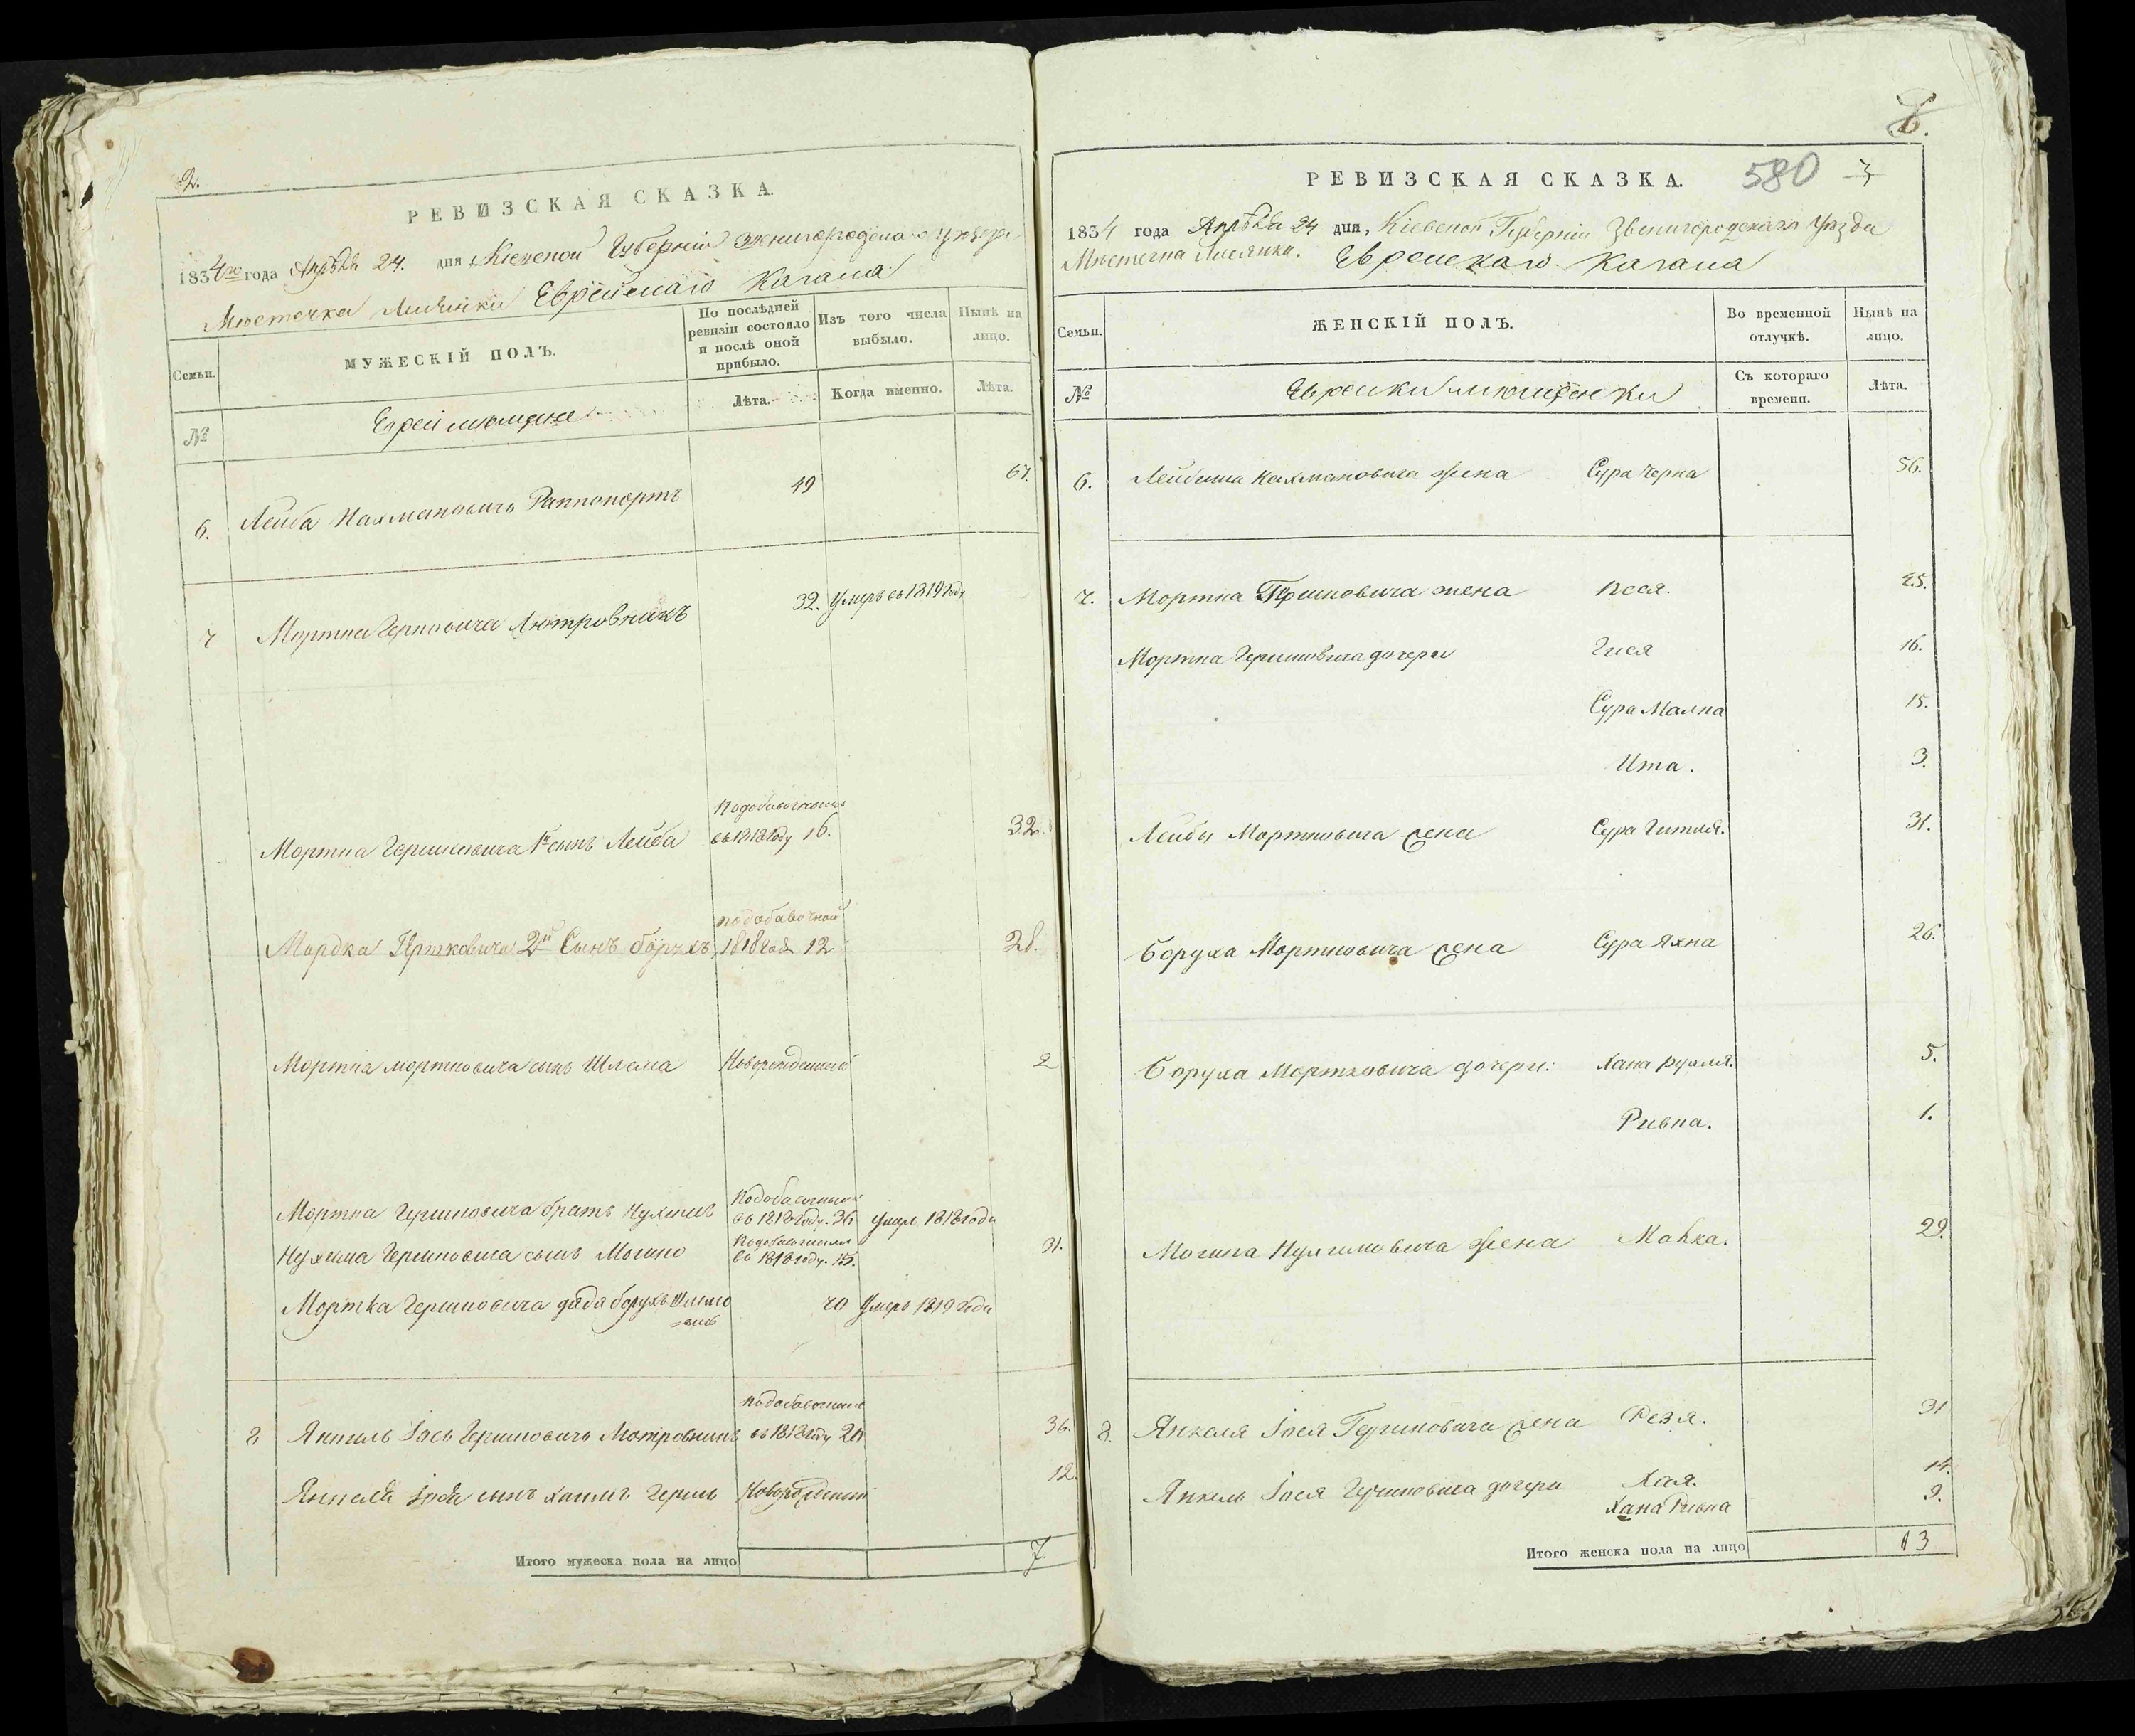 2.
РЕВИЗСКАЯ СКАЗКА.
1834го года Апрѣля 24. дня, Кіевской Губерніи Звенигородскаго уѣзда
Мѣстечка Лисянки Еврейскаго Кагала
Семьи.
МУЖЕСКІЙ ПОЛЪ.
По послѣдней ревизіи состояло и послѣ оной прибыло.
Изъ того числа выбыло.
Нынѣ на лицо.
№
Евреи мѣщане
Лѣта.
Когда именно.
Лѣта.
6. Лейба Нахмановичъ Раппопортъ 49 67.
7 Мортка Гершковича 32. Умеръ въ 1819 году
Мортка Гершковича 1й сынъ Лейба подобавочнымъ въ 1818 году 16. 32
Мордка Гершковича 2й Сынъ борухъ подобавочной 1818 года 12 28.
Мортка мортковича сынъ Шлема Новорожденный 2
Мортка Гершковича братъ Нухимъ Подобавочнымъ въ 1818 году. 36 умеръ 1818 года
Нухима Гершковича сынъ Мошко Подобавочнымъ въ 1818 году. 15. 31.
Мортка Гершковича дядя борухъ 70 Умеръ 1819 года
8 Янкель Іось Гершковичъ Мотровникъ подобавочнымъ въ 1818 году 20 36.
Янкеля Іося сынъ Хаимъ Гершъ Новорожденный 12
Итого мужеска пола на лицо 7.
8.
РЕВИЗСКАЯ СКАЗКА. 580 7
1834 года Апрѣля 24 дня, Кіевской Губерніи Звенигородскаго Уѣзда
Мѣстечка Лисянки. Еврейскаго Кагала
Семьи.
ЖЕНСКІЙ ПОЛЪ.
Во временной отлучкѣ.
Нынѣ на лицо.
№
Еврейки мѣщанки
Съ котораго времени.
Лѣта.
6. Лейбиша Нахмановича жена Сура Черна 56.
7. Мортка Гершковича жена Песя. 45.
Мортка Гершковича дочери Гися 16.
Сура Малка 15.
Ита. 3.
Лейбы Мортковича жена Сура Гитля. 31.
Боруха Мортковича жена Сура Яхна 26.
Боруха Мортковича дочери: Хана Рухля. 5.
Ривка. 1.
Мошка Нухимовича жена Манка. 29.
8. Янкеля Іося Гершковича жена Рейзя. 31
Янкель Іося Гершковича дочери Хая. 14.
Хана Ривка 9.
Итого женска пола на лицо 13